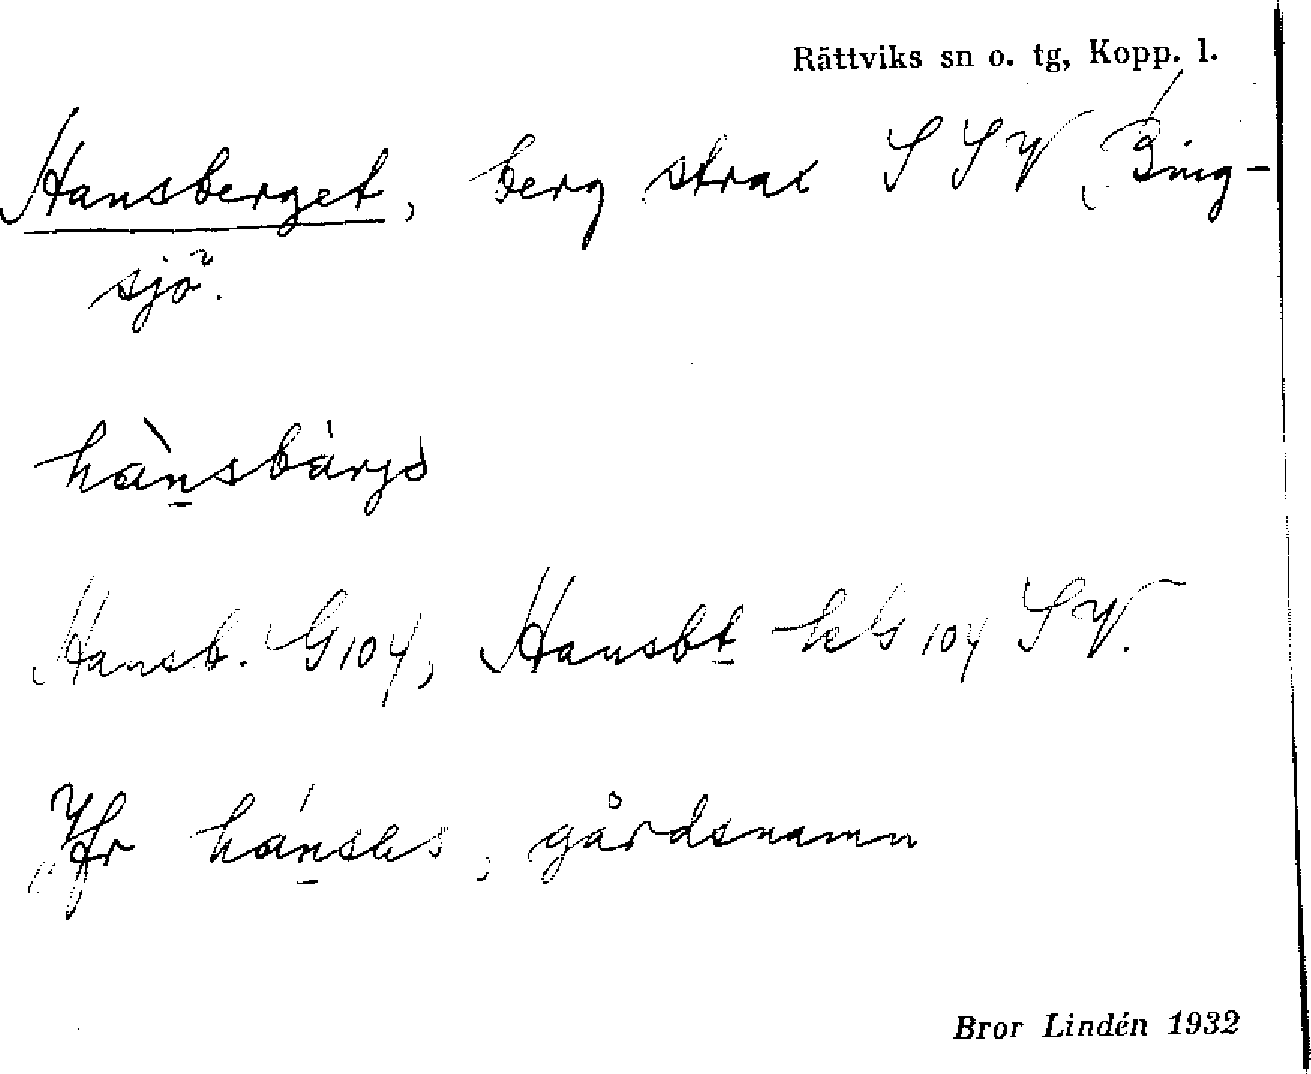 Rättviks sn o. tg, Kopp. l.
Hansberget, berg strax SSV Bing-
sjö.
hànsbàrjə
Hansb. G 104, Hansbt hG 104 SV.
Jfr hánsəs, gårdsnamn
Bror Lindén 1932